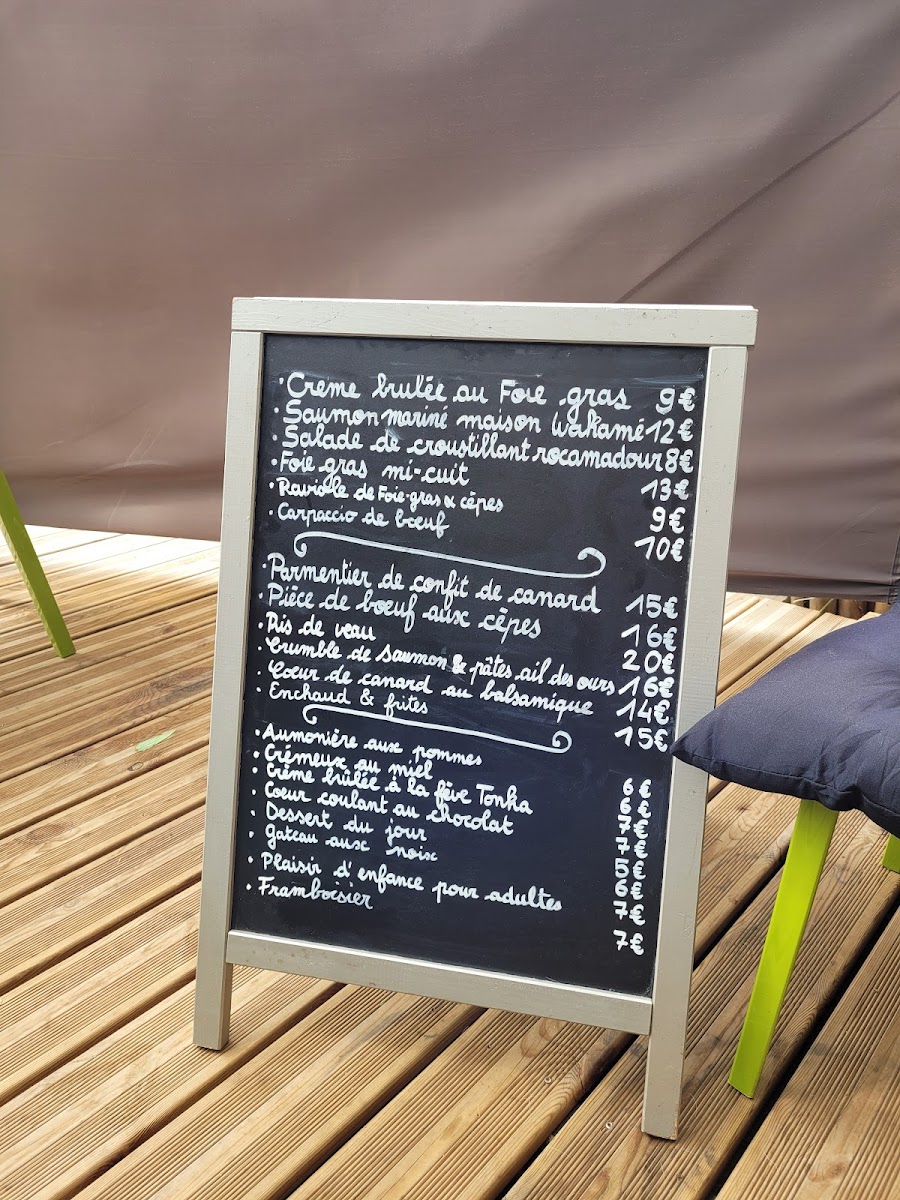 • Crème brulée au Foie gras 9€
• Saumon mariné maison Wakamé 12€
• Salade de croustillant rocamadour 8€
• Foie gras mi-cuit 13€
• Raviole de Foie-gras & cêpes 9€
• Carpaccio de bœuf 10€
• Parmentier de confit de canard 15€
• Piéce de bœuf aux cêpes 16€
• Ris de veau 20€
• Crumble de saumon & pâtes ail des ours 16€
• Cœur de canard au balsamique 14€
• Enchaud & frites 15€
• Aumoniére aux pommes 6€
• Crémeux au miel 6€
• Crème brûlée à la fêve Tonka 7€
• Coeur coulant au chocolat 7€
• Dessert du jour 5€
• Gateau aux noix 6€
• Plaisir d'enfance pour adultes 7€
• Framboisier 7€